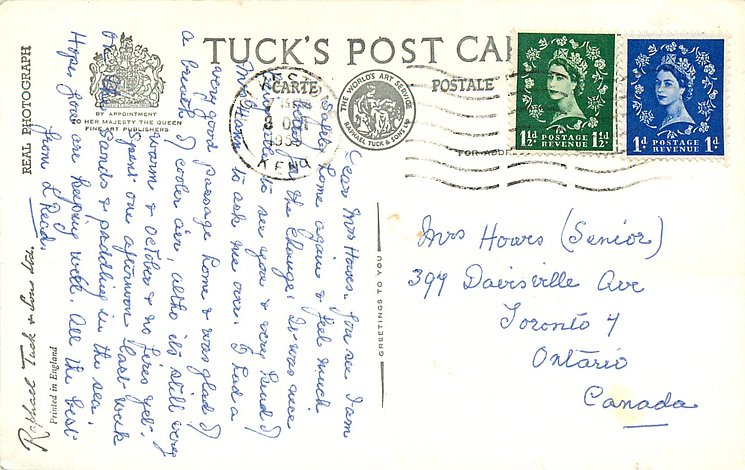 TUCK'S POST CAR
CARTE
POSTALE
REAL PHOTOGRAPH
BY APPOINTMENT
HER MAJESTY THE QUEEN
FINE ART PUBLISHERS
THE WORLD'S ART SERVICE
RAPHAEL TUCK & SONS LTD
FOR ADD
8 OC
KENT
1½d POSTAGE REVENUE 1½d
1d POSTAGE REVENUE 1d
Dear Mrs Howes. You see I am
safely home again & feel much
better for the change. It was nice
to see you & very kind of
Mrs to ask me over. I had a
very good passage home & was glad of
a breath of cooler air, altho its still very
warm & October & no fires yet.
Spent one afternoon last week
on the sands & paddling in the sea.
Hope you are keeping well. All the best
from L Read.
Mrs Howes (Senior)
397 Davisville Ave
Toronto 7
Ontario
Canada
GREETINGS TO YOU
Raphael Tuck & Sons Ltd.
Printed in England